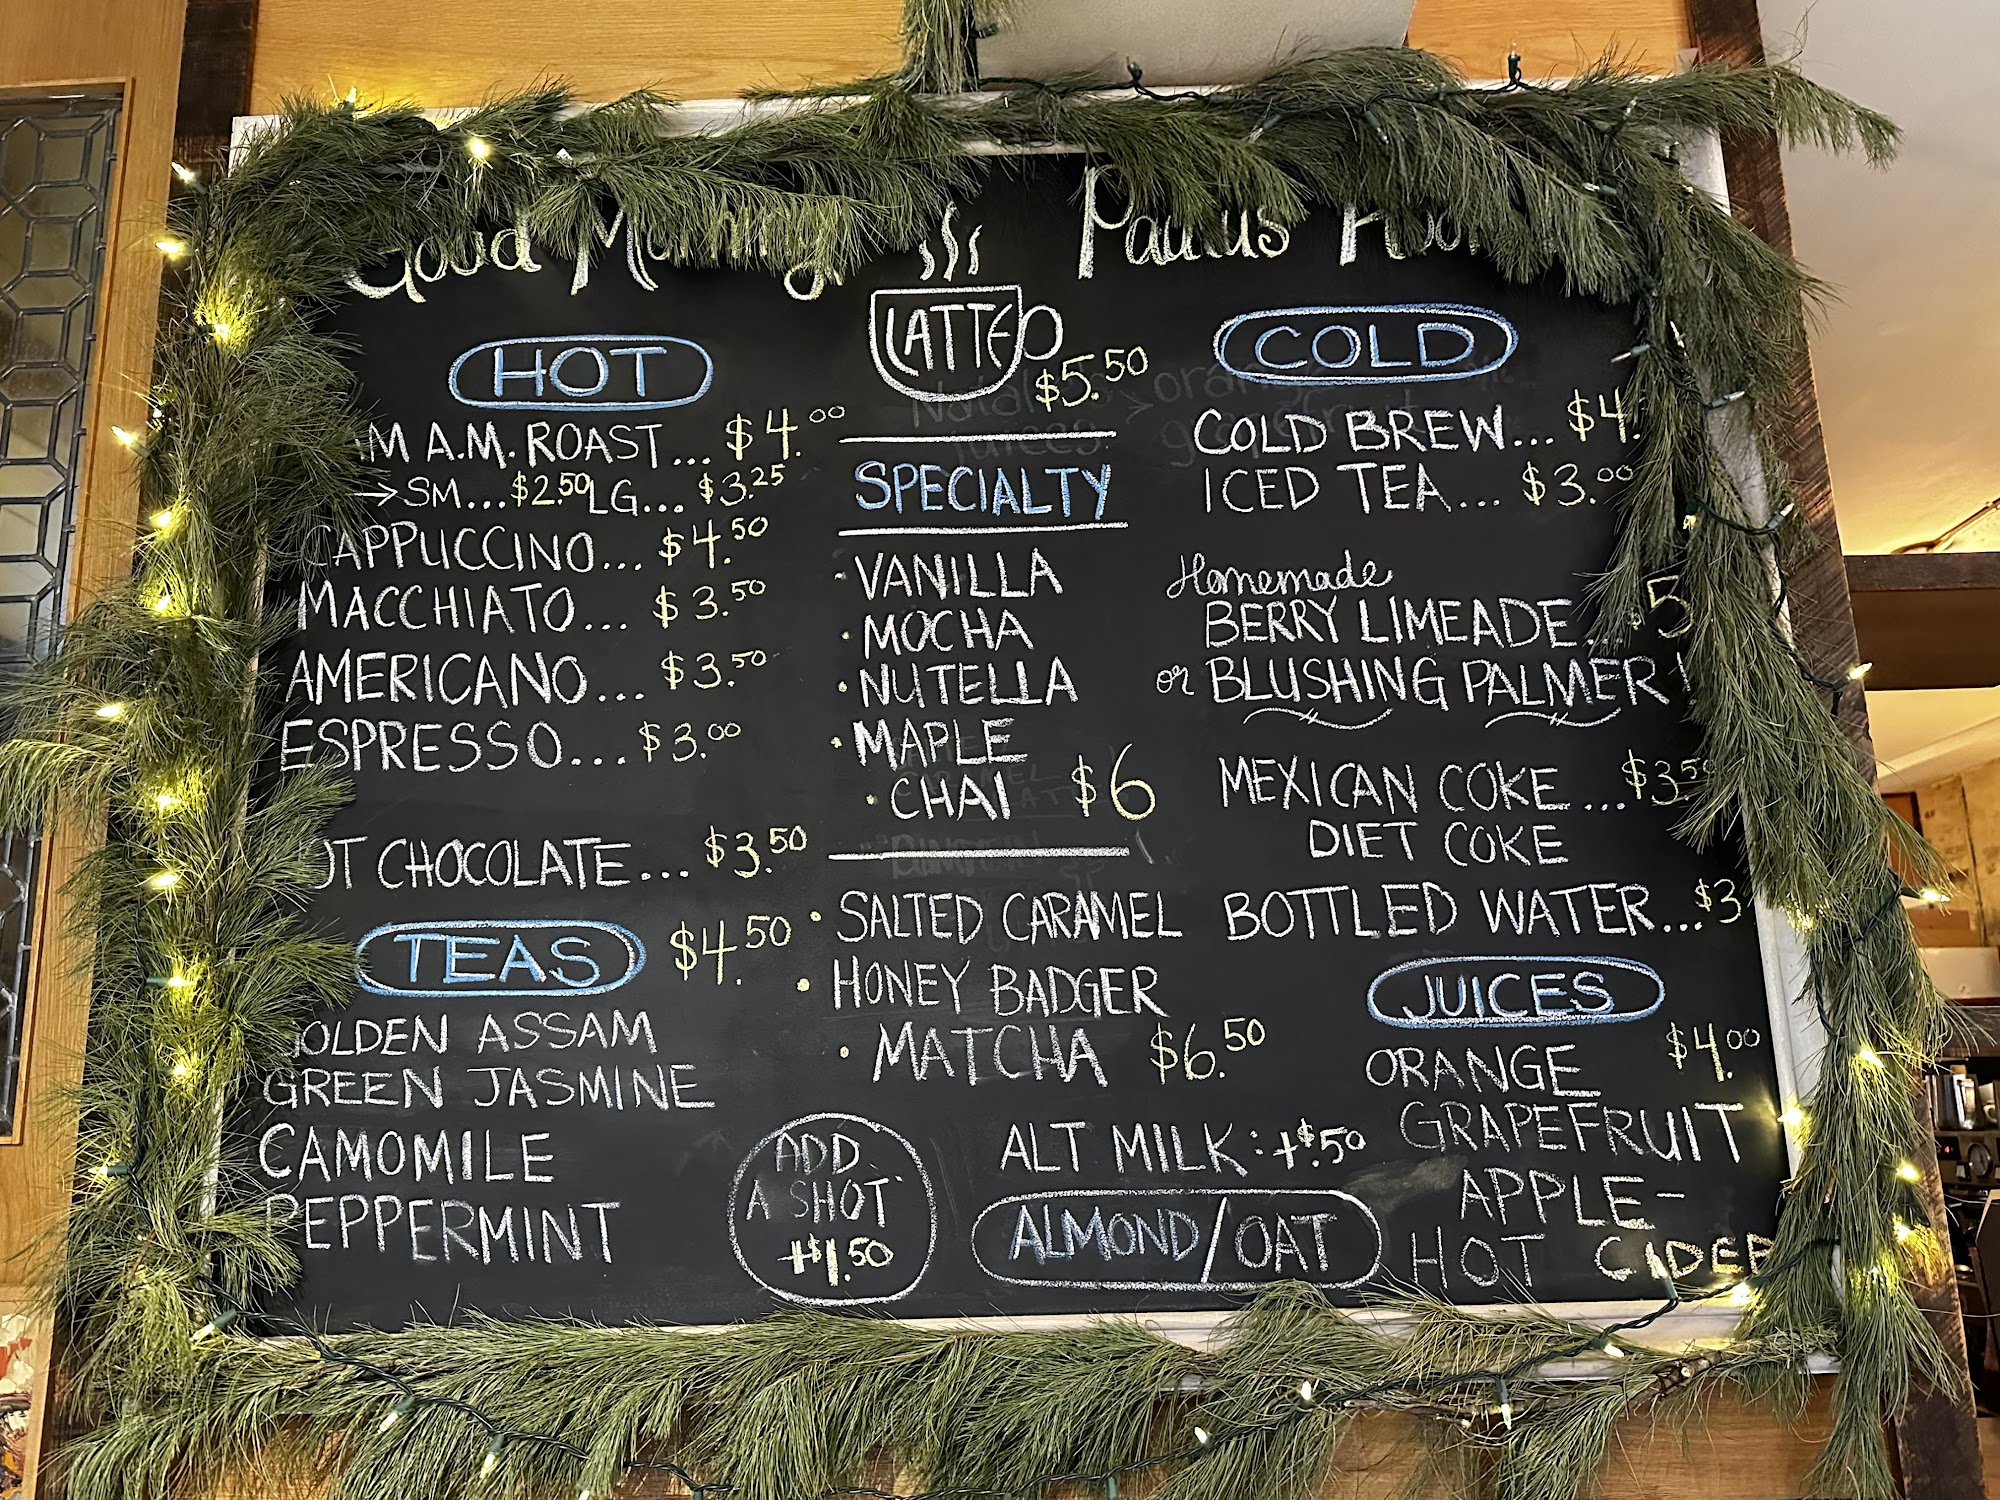 Good Morning
Paulus
HOT
A.M. ROAST ... $4.00
→ SM... $2.50 LG... $3.25
CAPPUCCINO... $4.50
MACCHIATO... $3.50
AMERICANO... $3.50
ESPRESSO... $3.00
CHOCOLATE... $3.50
TEAS $4.50
GOLDEN ASSAM
GREEN JASMINE
CAMOMILE
PEPPERMINT
LATTE
$5.50
SPECIALTY
· VANILLA
· MOCHA
· NUTELLA
· MAPLE
· CHAI $6
· SALTED CARAMEL
· HONEY BADGER
· MATCHA $6.50
ADD
A SHOT
+$1.50
ALT MILK: +$.50
ALMOND/OAT
COLD
COLD BREW... $4.
ICED TEA... $3.00
Homemade
BERRY LIMEADE... $5
or BLUSHING PALMER!
MEXICAN COKE... $3.50
DIET COKE
BOTTLED WATER... $3
JUICES
ORANGE $4.00
GRAPEFRUIT
APPLE-
HOT CIDER